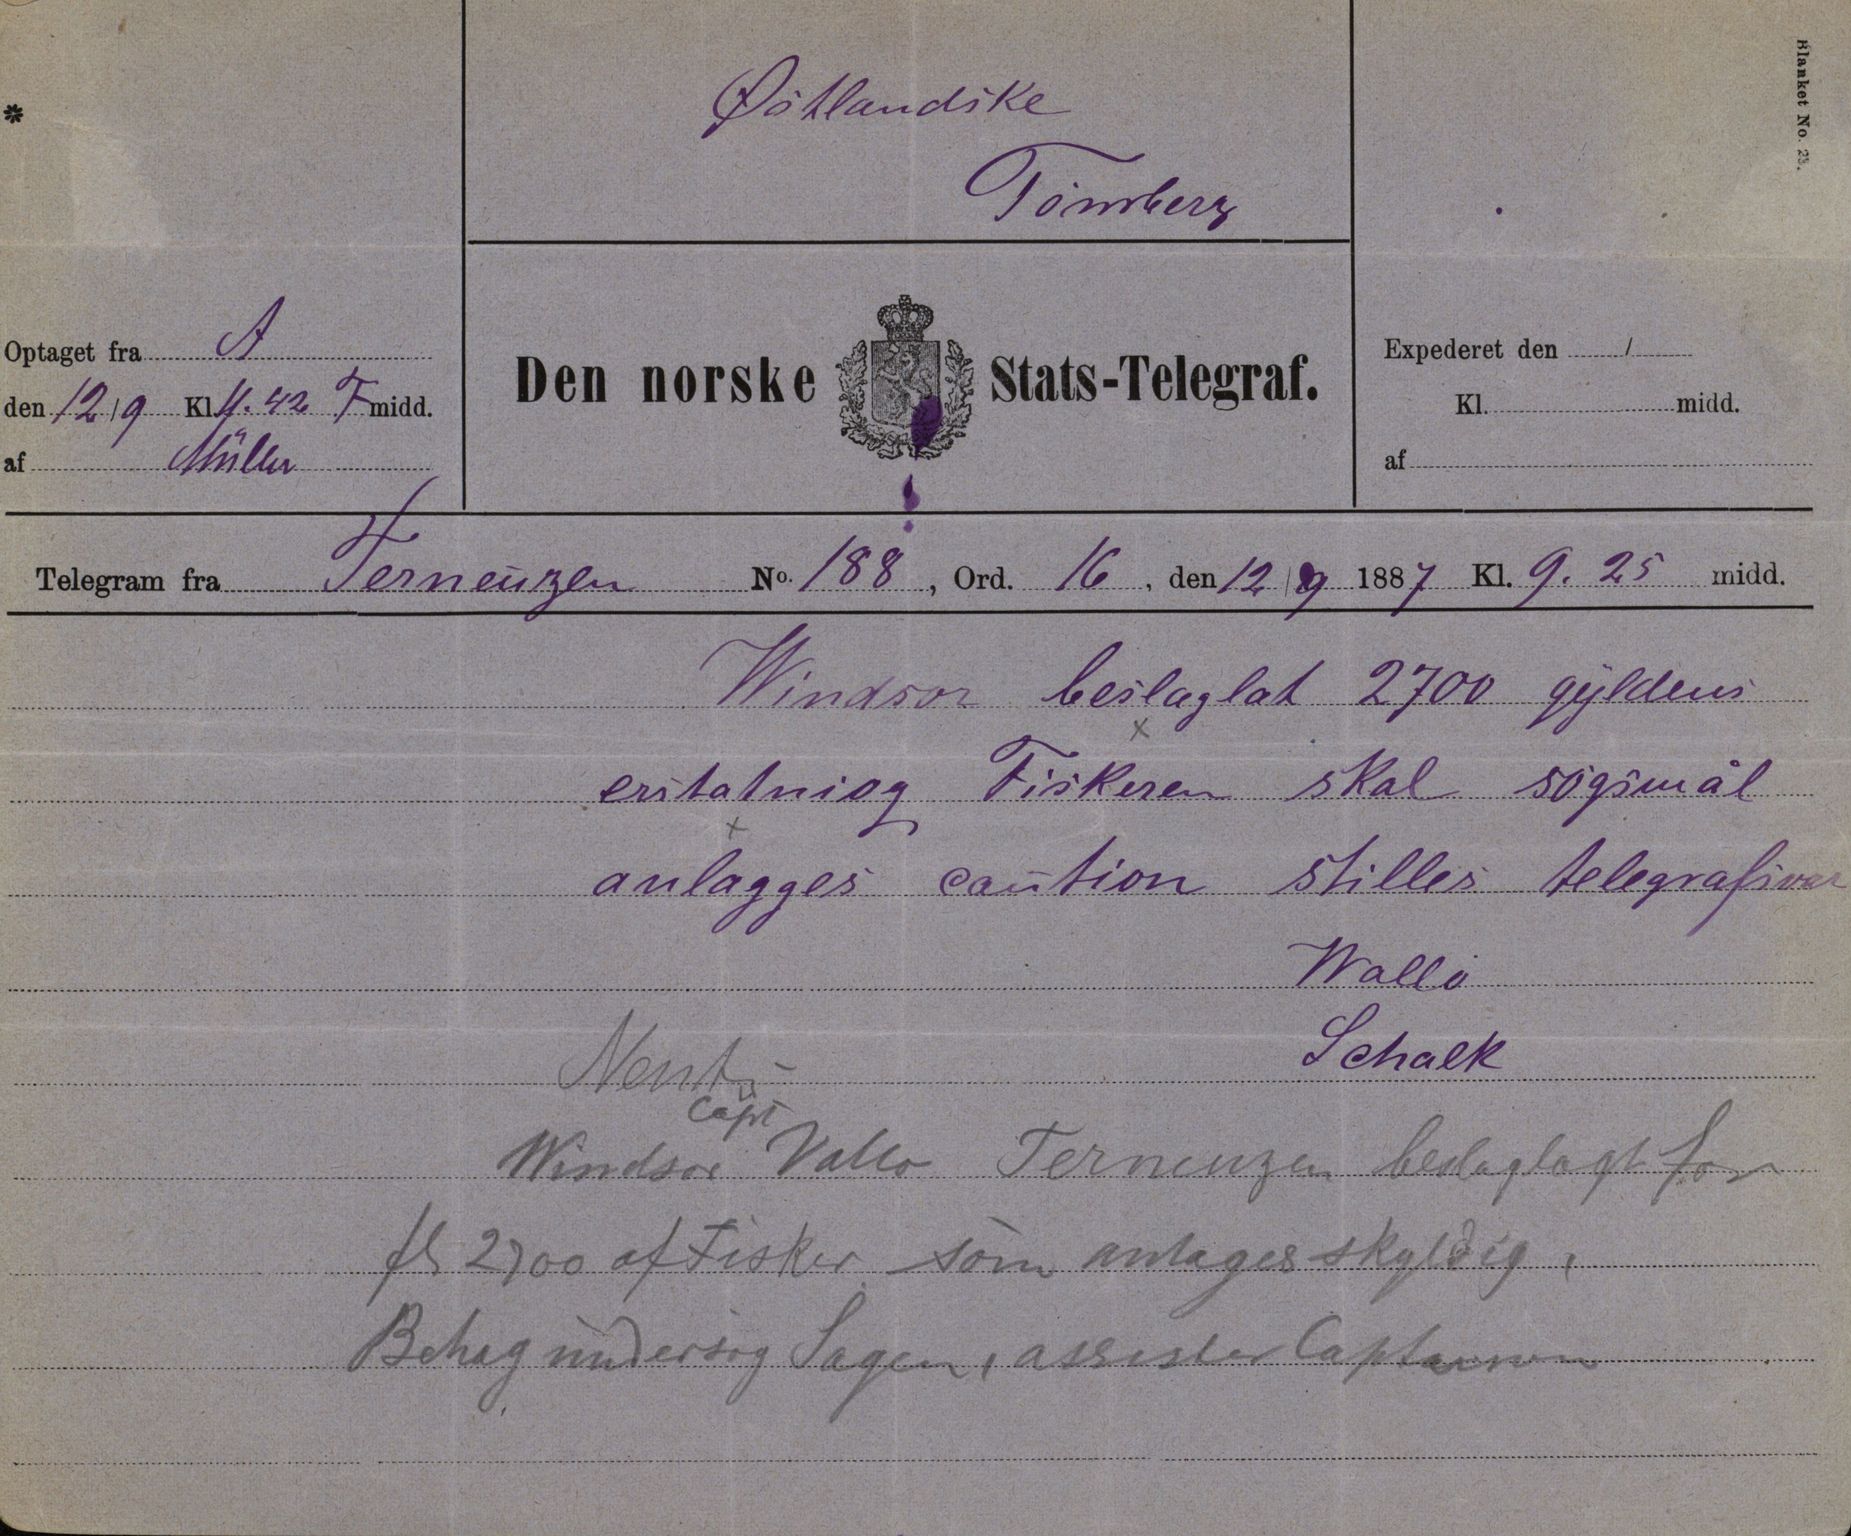 *
Blanket No. 23.
Østlandske
Tönsberg
Optaget fra A
den 12/9 Kl. 11.42 F midd.
af Müller
Den norske Stats-Telegraf.
Expederet den /
Kl. midd.
af
Telegram fra Terneuzen No. 188, Ord. 16, den 12/9 1887 Kl. 9.25 midd.
Windsor beslaglat 2700 gyldens
erstatniog Fiskeren skal sögsmål
anlagges caution stilles telegrafsvar
Wallö
Schalk
Capt
Windsor Vallo Terneuzen beslaglagt for
fl 2700 af Fisker som antages skyldig,
Behag undersög Sagen, assister Captainen